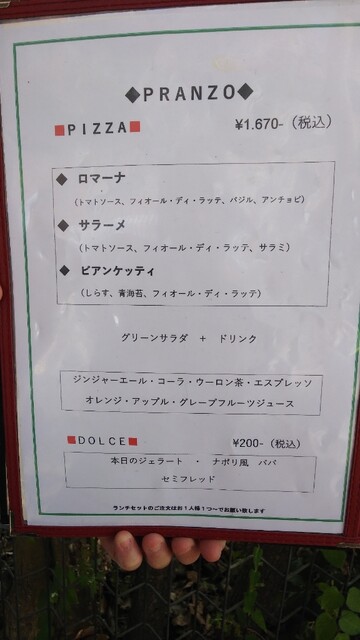 ◆PRANZO◆
■PIZZA■ ¥1.670-（税込）
◆ ロマーナ
（トマトソース、フィオール・ディ・ラッテ、バジル、アンチョビ）
◆ サラーメ
（トマトソース、フィオール・ディ・ラッテ、サラミ）
◆ ビアンケッティ
（しらす、青海苔、フィオール・ディ・ラッテ）
グリーンサラダ ＋ ドリンク
ジンジャーエール・コーラ・ウーロン茶・エスプレッソ
オレンジ・アップル・グレープフルーツジュース
■DOLCE■ ¥200-（税込）
本日のジェラート ・ ナポリ風 ババ
セミフレッド
ランチセットのご注文はお１人様１つ〜でお願い致します